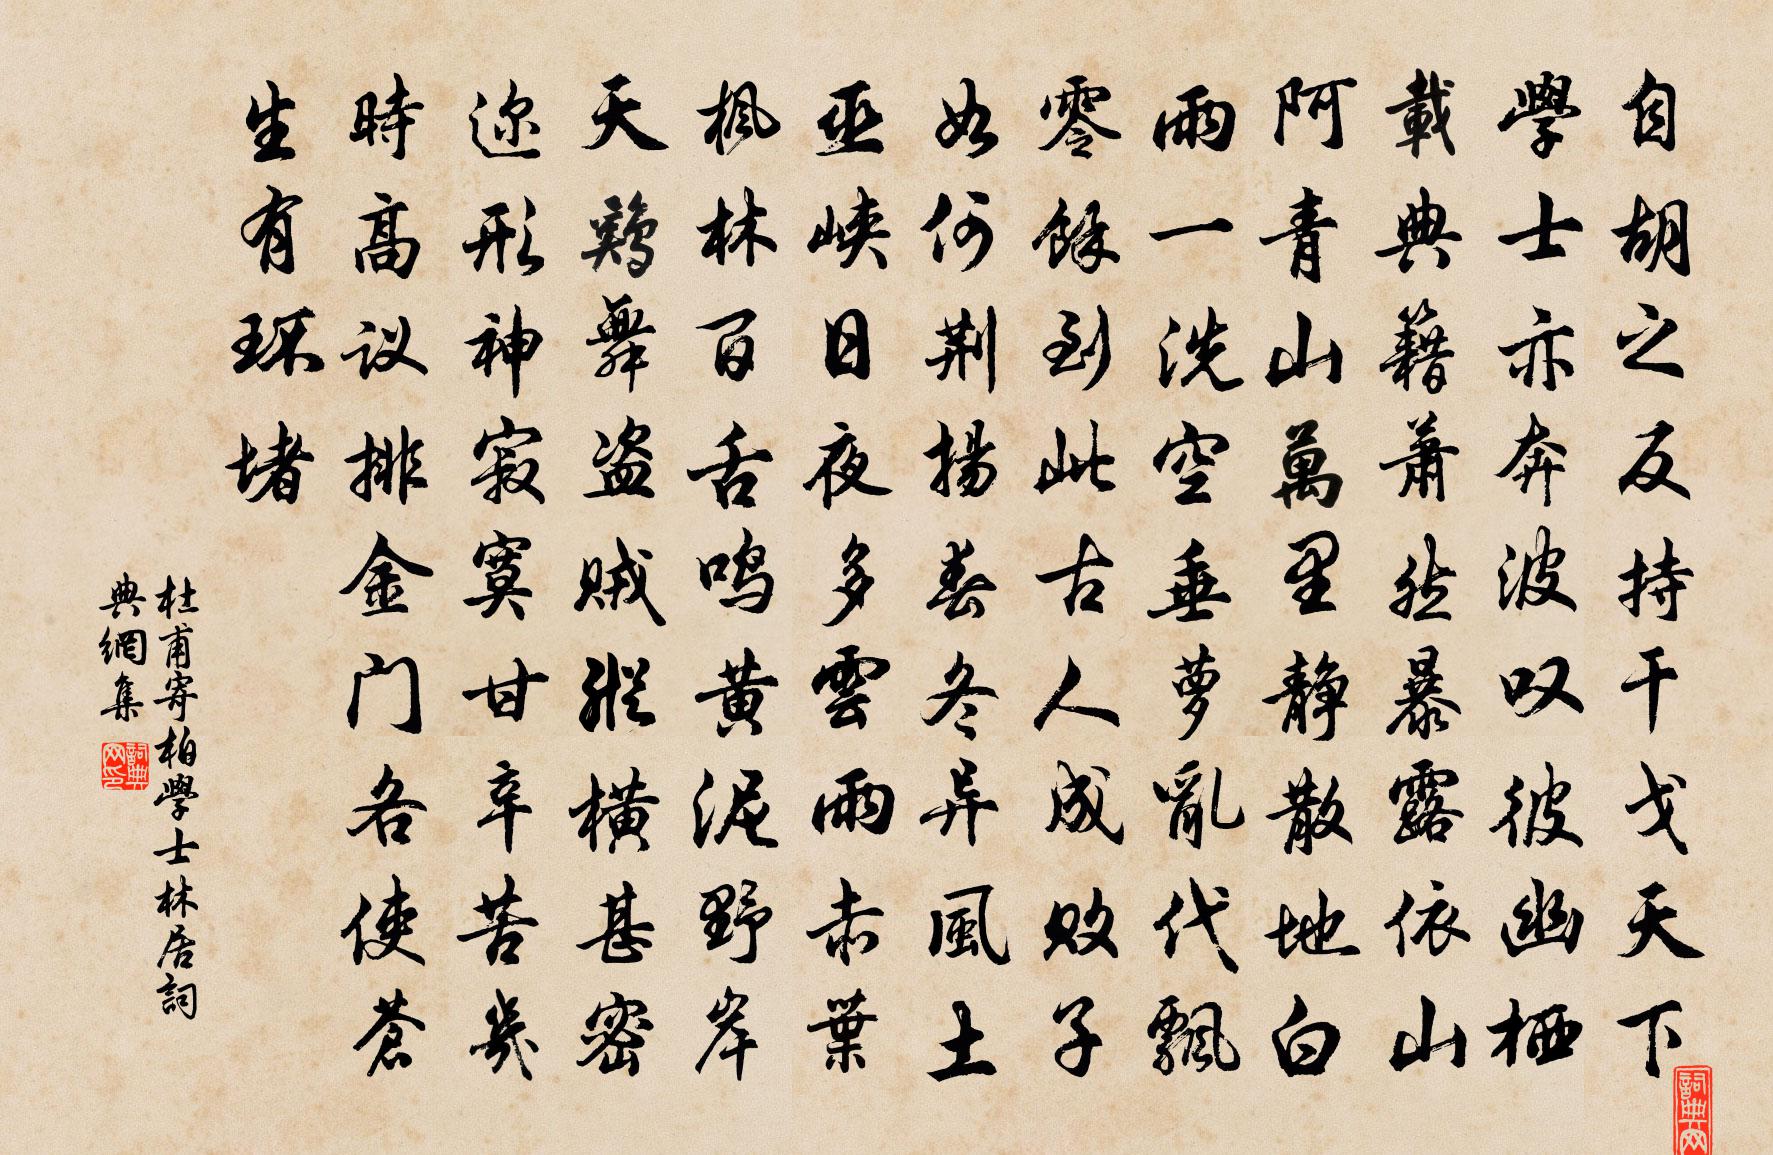 自胡之反持干戈天下
學士亦奔波叹彼幽栖
載典籍蕭然暴露依山
阿青山萬里静散地白
雨一洗空垂萝亂代飄
零餘到此古人成败子
如何荆揚春冬异風土
巫峡日夜多雲雨赤葉
枫林百舌鸣黄泥野岸
天鷄舞盗贼縱横甚密
迩形神寂寞甘辛苦幾
時高议排金门各使蒼
生有环堵
杜甫寄柏學士林居詞
典網集
詞典网印
詞典网